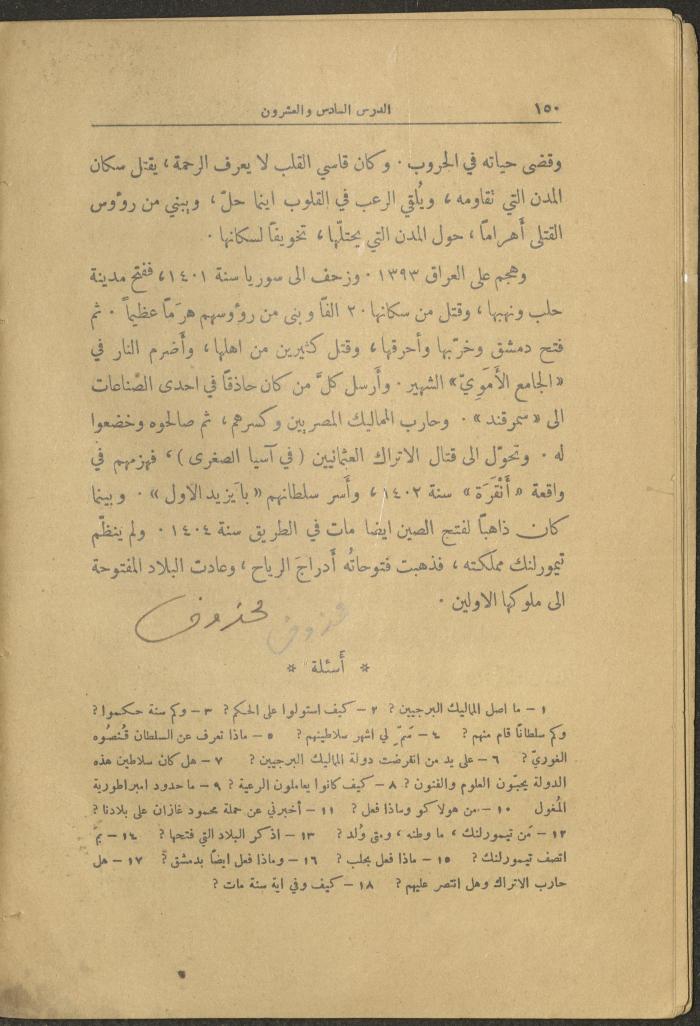 ١٥٠ الدرس السادس والعشرون
وقضى حياته في الحروب · وكان قاسي القلب لا يعرف الرحمة ، يقتل سكان
المدن التي تقاومه ، ويُلقي الرعب في القلوب اينما حلّ ، ويبني من رؤوس
القتلى أَهرامًا ، حول المدن التي يحتلّها ، تخويفًا لسكانها ·
وهجم على العراق ١٣٩٣ · وزحف الى سوريا سنة ١٤٠١ ، ففتح مدينة
حلب ونهبها ، وقتل من سكانها ٢٠ الفًا وبنى من رؤوسهم هرَمًا عظيمًا · ثم
فتح دمشق وخرّبها وأحرقها ، وقتل كثيرين من اهلها ، وأَضرم النار في
«الجامع الأَمَوِيّ» الشهير · وأَرسل كلَّ من كان حاذقًا في احدى الصّناعات
الى «سمرقند» · وحارب المماليك المصريين وكسرهم ، ثم صالحوه وخضعوا
له · وتحوّل الى قتال الاتراك العثمانيين (في آسيا الصغرى) ، فهزمهم في
واقعة «أَنْقَرَة» سنة ١٤٠٢ ، وأَسر سلطانهم «بايَزيد الاول» · وبينما
كان ذاهبًا لفتح الصين ايضا مات في الطريق سنة ١٤٠٤ · ولم ينظّم
تيمورلنك مملكته ، فذهبت فتوحاتُه أَدراجَ الرياح ، وعادت البلاد المفتوحة
الى ملوكها الاولين ·
محذوف محذوف
* أَسئلة *
١ – ما اصل المماليك البرجيين ؟ ٢ – كيف استولوا على الحكم ؟ ٣ – وكم سنة حكموا ؟
وكم سلطانًا قام منهم ؟ ٤ – سَمِّ لي اشهر سلاطينهم ؟ ٥ – ماذا تعرف عن السلطان قُنصُوه
الغوريّ ؟ ٦ – على يد من انقرضت دولة المماليك البرجيين ؟ ٧ – هل كان سلاطين هذه
الدولة يحبّون العلوم والفنون ؟ ٨ – كيف كانوا يعاملون الرعية ؟ ٩ – ما حدود امبراطورية
المُغول ١٠ – من هولاكو وماذا فعل ؟ ١١ – أخبرني عن حملة محمود غازان على بلادنا ؟
١٢ – مَن تيمورلنك ، ما وطنه ، ومتى وُلد ؟ ١٣ – اذكر البلاد التي فتحها ؟ ١٤ – بمَ
اتصف تيمورلنك ؟ ١٥ – ماذا فعل بحلب ؟ ١٦ – وماذا فعل ايضًا بدمشق ؟ ١٧ – هل
حارب الاتراك وهل انتصر عليهم ؟ ١٨ – كيف وفي اية سنة مات ؟